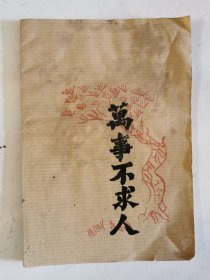 萬事不求人